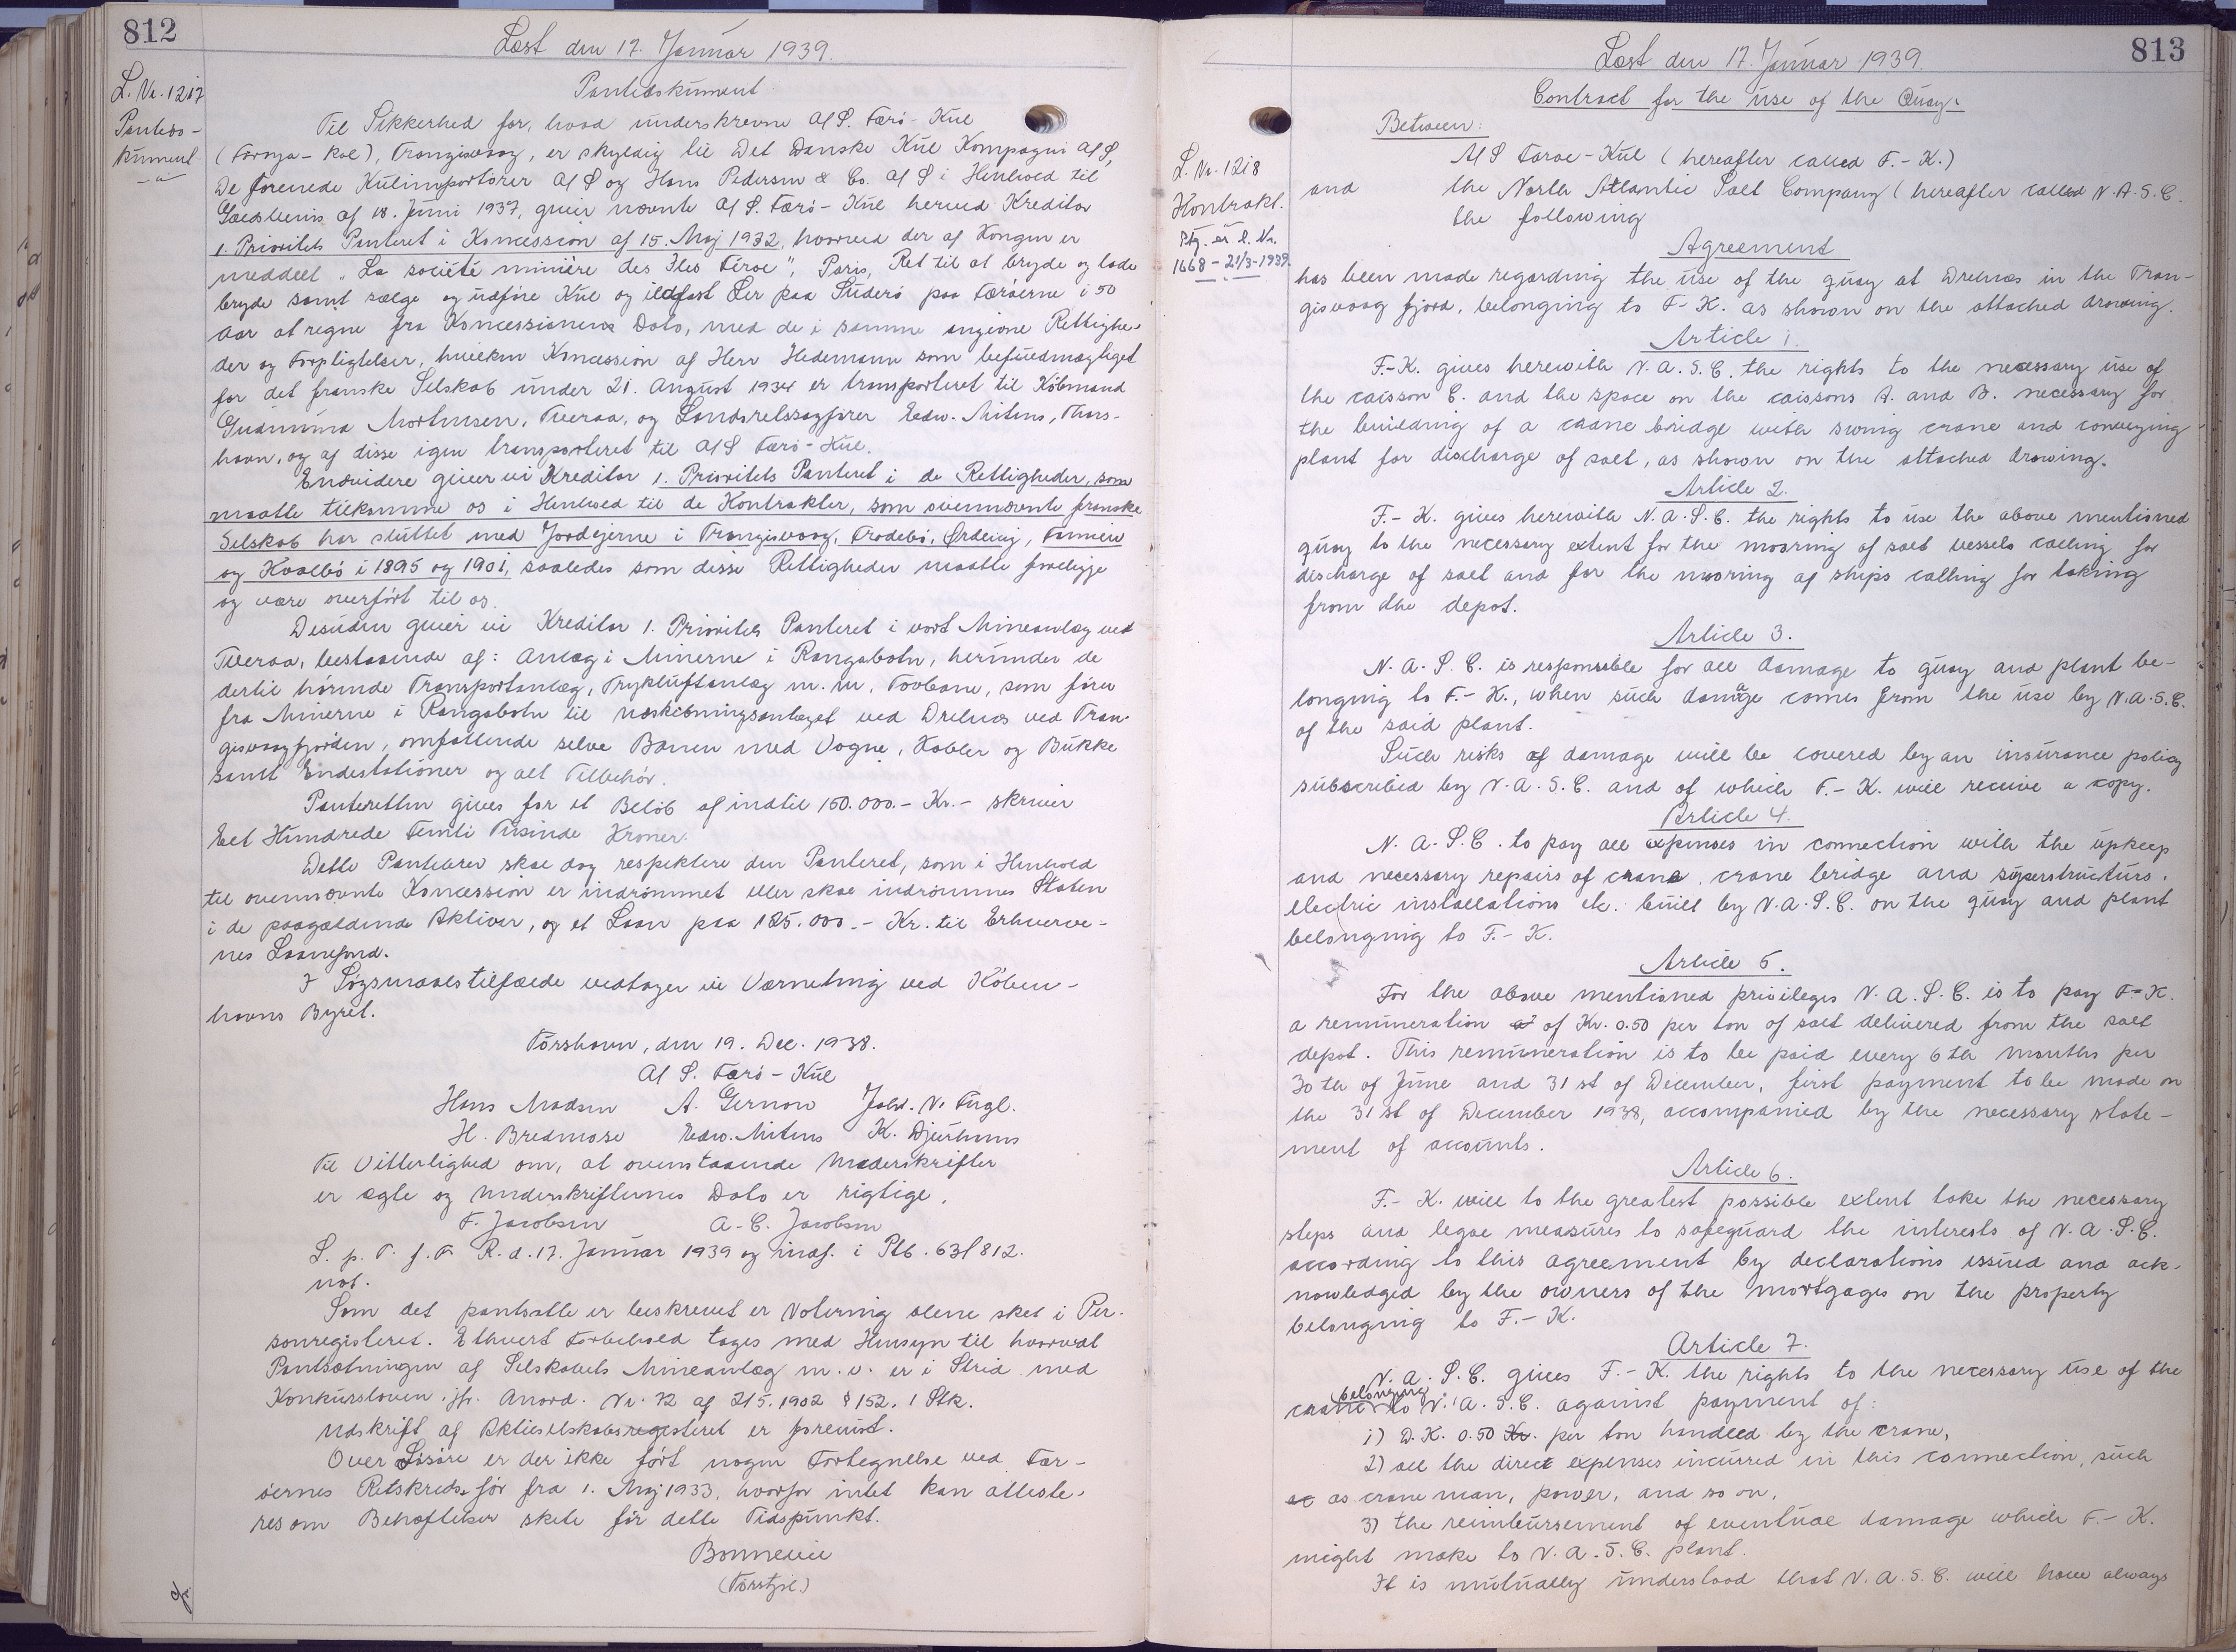 812
Læst den 17. Januar 1939.
L. Nr. 1217
Pantedo-
kument
Pantedokument
Til Sikkerhed for, hvad underskrevne A/S. Færö-Kul
(Föroya-Kol), Trangisvaag, er skyldig til Det Danske Kul Kompagni A/S,
De forenede Kulimportører A/S og Hans Pedersen & Co. A/S i Henhold til
Gældsbevis af 18. Juni 1937, giver nævnte A/S. Færö-Kul herved Kreditor
1. Prioritets Panteret i Koncession af 15. Maj 1932, hvorved der af Kongen er
meddelt "La société minière des Iles Féroe", Paris, Ret til at bryde og lade
bryde samt sælge og udføre Kul og ildfast Ler paa Suderö paa Færöerne i 50
Aar at regne fra Koncessionens Dato, med de i samme angivne Rettighe-
der og Forpligtelser, hvilken Koncession af Herr Hedemann som befuldmægtiget
for det franske Selskab under 21. August 1934 er transporteret til Købmand
Gudmund Mortensen, Tveraa, og Landsretssagfører Edw. Mitens, Thors-
havn, og af disse igen transporteret til A/S Færö-Kul.
Endvidere giver vi Kreditor 1. Prioritets Panteret i de Rettigheder, som
maatte tilkomme os i Henhold til de Kontrakter, som ovennævnte franske
Selskab har sluttet med Jordejerne i Trangisvaag, Frodebö, Ördevig, Famien
og Hvalbö i 1895 og 1901, saaledes som disse Rettigheder maatte foreligge
og være overført til os.
Desuden giver vi Kreditor 1. Prioritets Panteret i vort Mineanlæg ved
Tveraa, bestaaende af: Anlæg i Minerne i Rangabotn, herunder de
dertil hørende Transportanlæg, Trykluftanlæg m.m., Tovbane, som fører
fra Minerne i Rangabotn til Udskibningsanlæget ved Drelnæs ved Tran-
gisvaagfjorden, omfattende selve Banen med Vogne, Kabler og Bukke
samt Endestationer og alt Tilbehør.
Panteretten gives for et Beløb af indtil 150.000.- Kr.- skriver
Eet Hundrede Femti Tusinde Kroner.
Dette Pantebrev skal dog respektere den Panteret, som i Henhold
til ovennævnte Koncession er indrømmet eller skal indrømmes Staten
i de paagældende Aktiver, og et Laan paa 185.000.- Kr. til Erhverve-
nes Laanefond.
I Søgsmaalstilfælde vedtager vi Værneting ved Køben-
havns Byret.
Tórshavn, den 19. Dec. 1938.
A/S. Færö-Kul
Hans Madsen A. Gernow Johs. N. Fugl.
H. Bredmose Edw. Mitens K. Djurhuus
Til Vitterlighed om, at ovenstaaende Underskrifter
er ægte og Underskrifternes Dato er rigtige.
F. Jacobsen A. C. Jacobsen
L. p. T. f. F. R. d. 17. Januar 1939 og indf. i Ptb. 63f 812.
not.
Som det pantsatte er beskrevet er Notering alene sket i Per-
sonregisteret. Ethvert Forbehold tages med Hensyn til hvorvidt
Pantsætningen af Selskabets Mineanlæg m. v. er i Strid med
Konkursloven. jfr. Anord. Nr. 72 af 2/5. 1902 § 152, 1 Stk.
Udskrift af Aktieselskabsregisteret er forevist.
Over Løsøre er der ikke ført nogen Fortegnelse ved Fær-
øernes Retskreds før fra 1. Maj 1933, hvorfor intet kan atteste-
res om Behæftelser skete før dette Tidspunkt.
Bonnevie
(Torstjil)
813
Læst den 17. Januar 1939.
L. Nr. 1218
Kontrakt.
Ptg. er l. Nr.
1668 - 21/3-1939.
Contract for the use of the Quay.
Between:
A/S Faroe-Kul (hereafter called F.-K.)
and the North Atlantic Salt Company (hereafter called N.A.S.C.
the following
Agreement
has been made regarding the use of the quay at Drelnæs in the Tran-
gisvaag fjord, belonging to F-K. as shown on the attached drawing.
Article 1.
F.-K. gives herewith N.A.S.C. the rights to the necessary use of
the caisson C. and the space on the caissons A. and B. necessary for
the building of a crane bridge with swing crane and conveying
plant for discharge of salt, as shown on the attached drawing.
Article 2.
F.-K. gives herewith N.A.S.C. the rights to use the above mentioned
quay to the necessary extent for the mooring of salt vessels calling for
discharge of salt and for the mooring of ships calling for taking
from the depot.
Article 3.
N.A.S.C. is responsible for all damage to quay and plant be-
longing to F.-K., when such damage comes from the use by N.A.S.C.
of the said plant.
Such risks of damage will be covered by an insurance policy
subscribed by N.A.S.C. and of which F.-K. will receive a copy.
Article 4.
N.A.S.C. to pay all expenses in connection with the upkeep
and necessary repairs of crane, crane bridge and superstructurs,
electric installations etc. built by N.A.S.C. on the quay and plant
belonging to F.-K.
Article 5.
For the above mentioned privileges N.A.S.C. is to pay F-K.
a remuneration of Kr. 0.50 per ton of salt delivered from the salt
depot. This remuneration is to be paid every 6th months per
30th of June and 31st of December, first payment to be made on
the 31st of December 1938, accompanied by the necessary state-
ment of accounts.
Article 6.
F.-K. will to the greatest possible extent take the necessary
steps and legal measures to safeguard the interests of N.A.S.C.
according to this agreement by declarations issued and ack-
nowledged by the owners of the mortgages on the property
belonging to F.-K.
Article 7.
N.A.S.C. gives F.-K. the rights to the necessary use of the
crane belonging to N.A.S.C. against payment of:
1) D.K. 0.50 Kr. per ton handled by the crane,
2) all the direct expenses incurred in this connection, such
as as crane man, power, and so on,
3) the reimbursement of eventual damage which F.-K.
might make to N.A.S.C. plant.
It is mutually understood that N.A.S.C. will have always